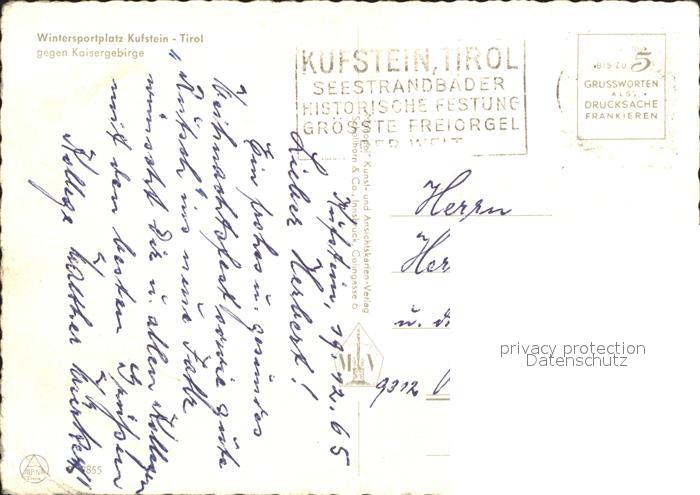 Wintersportplatz Kufstein - Tirol
gegen Kaisergebirge
KUFSTEIN, TIROL
SEESTRANDBÄDER
HISTORISCHE FESTUNG
GRÖSSTE FREIORGEL
DER WELT
BIS ZU 5
GRUSSWORTEN
ALS
DRUCKSACHE
FRANKIEREN
Kufstein, 19.12.65
Lieber Herbert!
Ein frohes u. gesundes
Weihnachtsfest sowie gute
"Rutsch" ins neue Jahr
wünscht Dir u. allen Kollegen
mit den besten Grüßen
Kollege Walther
Kunst- und Ansichtskarten-Verlag
& Co., Innsbruck, Colingasse 6
Herrn
Her
u.
9312
855
privacy protection
Datenschutz